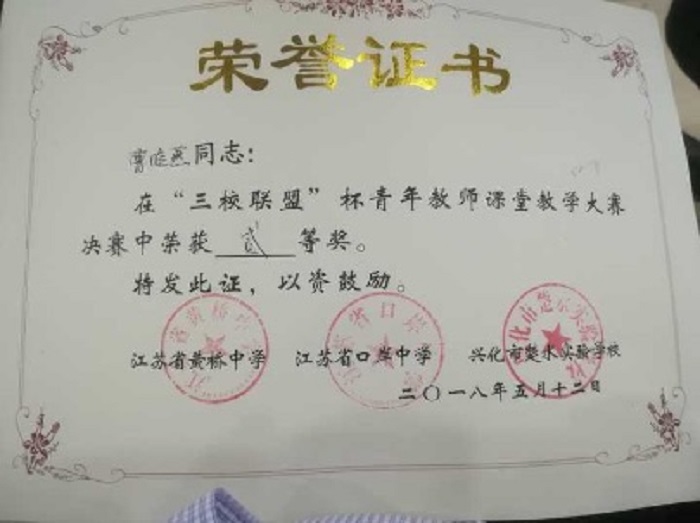 荣誉证书
同志：
在“三校联盟”杯青年教师课堂教学大赛
决赛中荣获 贰 等奖。
特发此证，以资鼓励。
江苏省黄桥中学 江苏省口岸中学 兴化市楚水实验学校
二〇一八年五月十二日